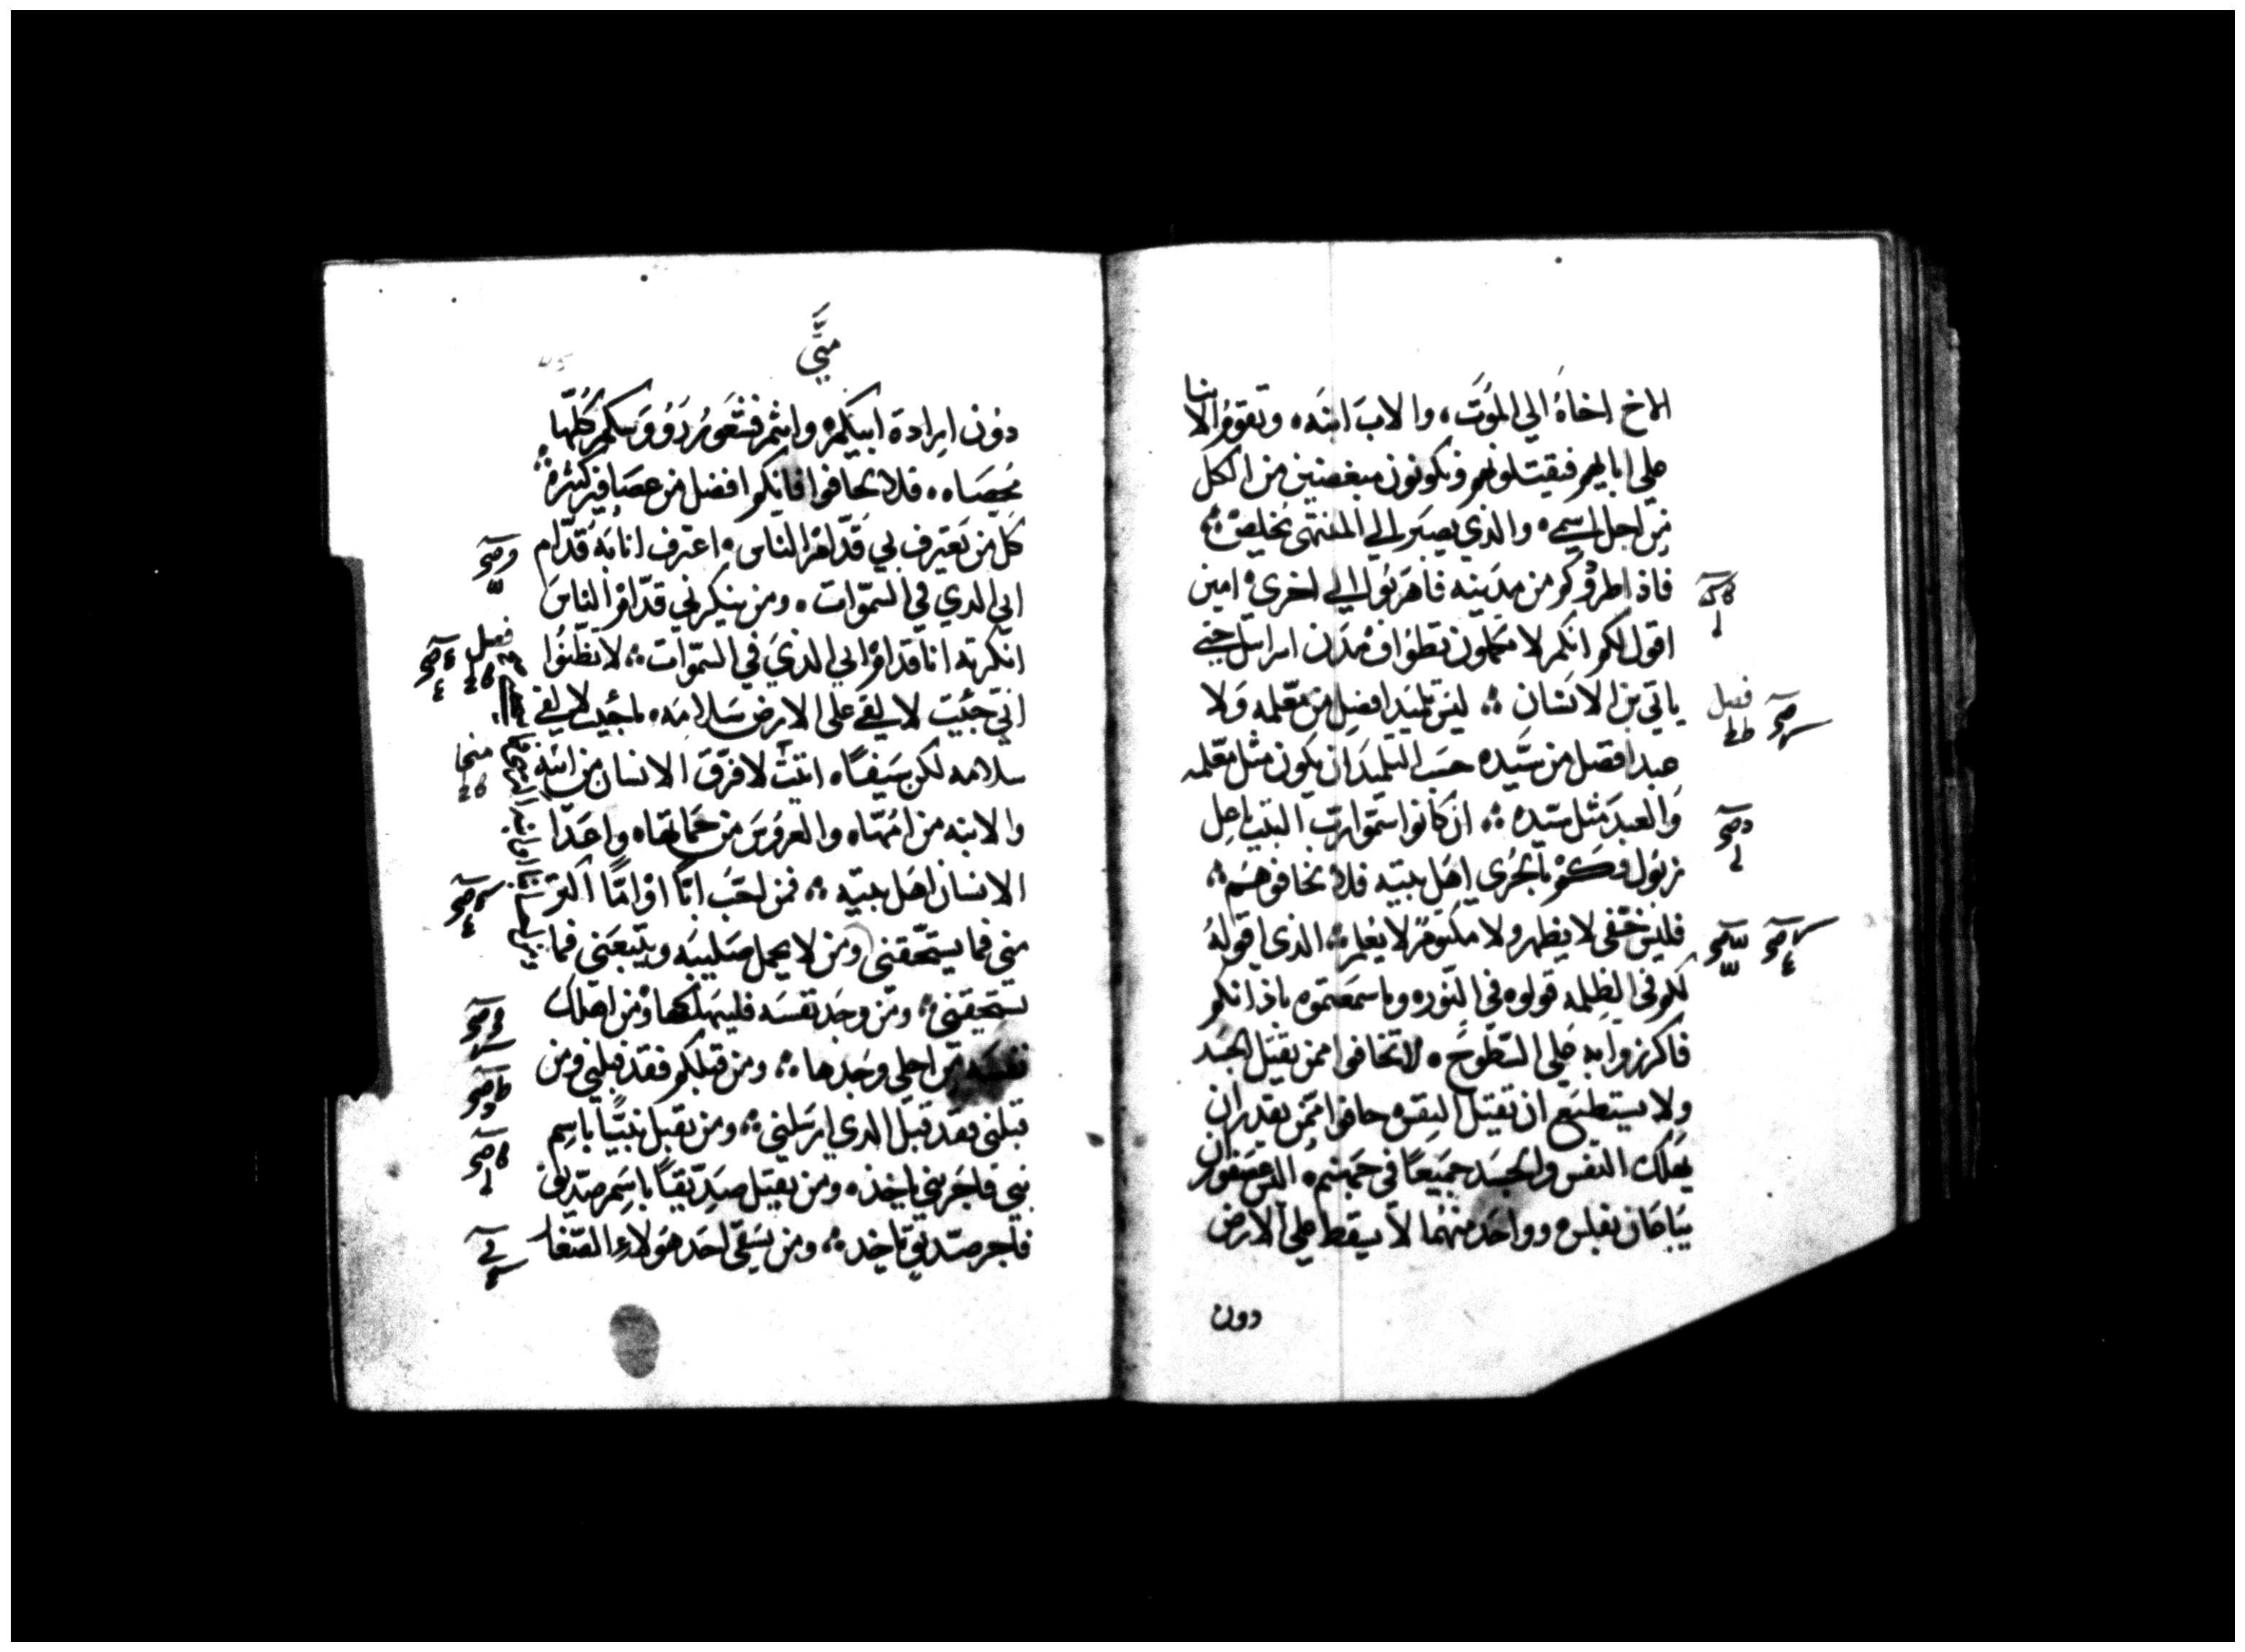 الاخ اخاه الي الموت، والاب ابنه، وتقوم الابنا
علي ابايهم فيقتلونهم وتكونون مبغضين من الكل
من اجل اسمي، والذي يصبر الي المنتهى يخلص
فاذا طردوكم من مدينه فاهربوا الي اخري امين
اقول لكم انكم لا تكملون تطواف مدن اسرايل حتي
ياتي بن الانسان ليس تلميد افضل من معلمه ولا
عبد افضل من سيده حسب التلميد ان يكون مثل معلمه
والعبد مثل سيده ان كانوا سموا رب البيت باعل
زبول فكم بالحري اهل بيته فلا تخافوهم
فليس خفي لا يظهر ولا مكتوم لا يعلم الذي اقوله
لكم في الظلمه قولوه في النور وما سمعتموه باذانكم
فاكرزوا به علي السطوح لا تخافوا ممن يقتل الجسد
ولا يستطيع ان يقتل النفس خافوا ممن يقدر ان
يهلك النفس والجسد جميعا في جهنم اليس عصفوران
يباعان بفلس وواحد منهما لا يسقط علي الارض
دون
متي
دون ارادة ابيكم وانتم فشعور روؤسكم كلها
محصاه فلا تخافوا فانكم افضل من عصافير كثيرة
كل من يعترف بي قدام الناس اعترف انا به قدام
ابي الدي في السموات ومن ينكرني قدام الناس
انكرته انا قدام ابي الذي في السموات لا تظنوا
اني جيت لالقي علي الارض سلامه ما جيت لالقي
سلامه لكن سيفا اتيت لافرق الانسان من ابيه
والابنه من امها والعروس من حماتها واعدا
الانسان اهل بيته فمن احب ابا او اما اكتر
مني فما يستحقني ومن لا يحمل صليبه ويتبعني فما
يستحقني ومن وجد نفسه فليهلكها ومن اهلك
نفسه من اجلي وجدها ومن قبلكم فقد قبلني ومن
قبلني فقد قبل الدي ارسلني ومن يقبل نبيا باسم
نبي فاجر نبي ياخذ ومن يقبل صديقا باسم صديق
فاجر صديق ياخد ومن يسقي احد هولاء الصغار